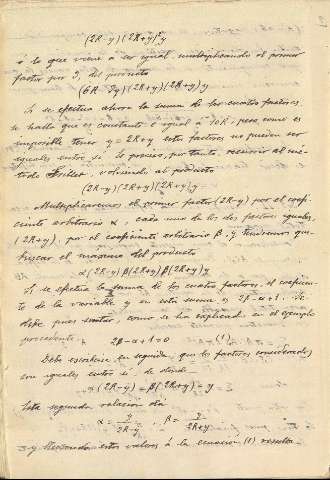 (2R-y)(2R+y)²y
ó lo que viene á ser igual, multiplicando el primer
factor por 3, del producto
(6R-3y)(2R+y)(2R+y)y
Si se efectua ahora la suma de los cuatro factores,
se halla que es constante é igual á 10R, pero, como es
imposible tener y=2R+y estos factores no pueden ser
iguales entre si. Es preciso, por tanto, recurrir al mé-
todo volviendo al producto
(2R-y)(2R+y)(2R+y)y
Multiplicaremos el primer factor (2R-y) por el coefi-
ciente arbitrario α, cada uno de los dos factores iguales,
(2R+y), por el coeficiente arbitrario β, y tendremos que
buscar el maximo del producto
α(2R-y)β(2R+y)β(2R+y)y
Si se efectua la suma de los cuatro factores, el coeficien-
te de la variable y en esta suma es 2β-α+1. Se
debe pues sentar, como se ha explicado en el ejemplo
precedente,
2β-α+1=0 (1)
Debe escribirse, en seguida, que los factores considerados
son iguales entre si, de donde
α(2R-y)=β(2R+y)=y
Esta segunda relacion dá
α = y/2R-y , β = y/2R+y
y llevando estos valores á la ecuacion (1) resulta